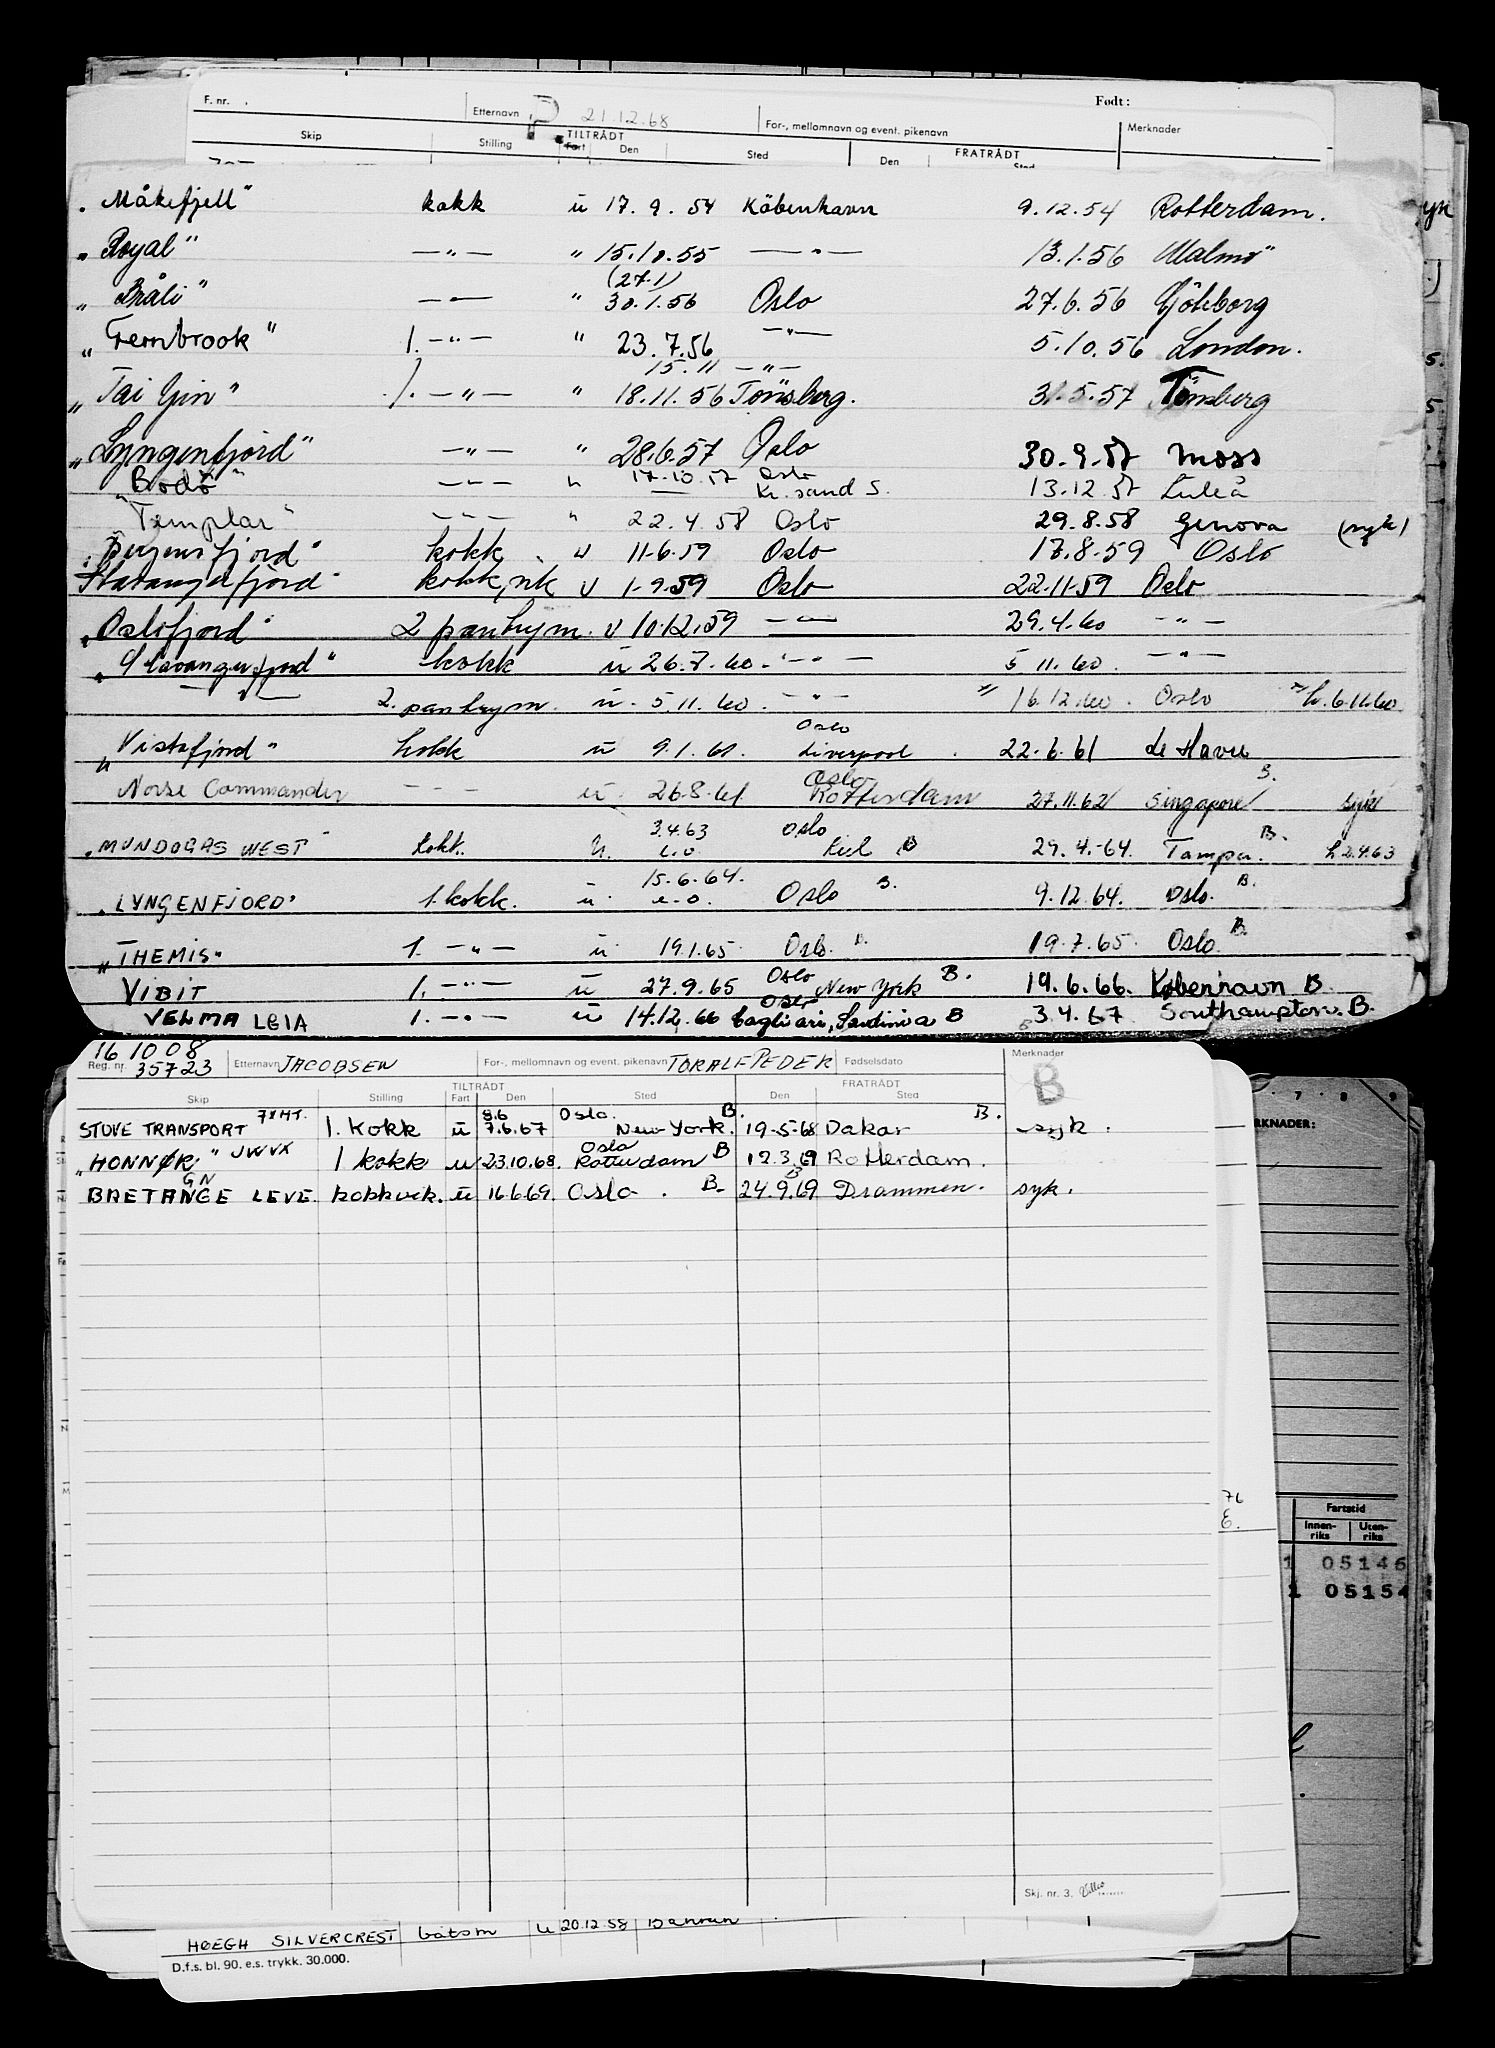 F. nr. Etternavn 21.12.68 For-, mellomnavn og event. pikenavn Født: Merknader
Skip Stilling TILTRÅDT Fart Den Sted FRATRÅDT Den
"Måkefjell" kokk u 17.9.54 Köbenhavn 9.12.54 Rotterdam.
"Royal" —"— " 15.10.55 —"— 13.1.56 Malmö
(27.1)
"Bråli" —"— " 30.1.56 Oslo 27.6.56 Göteborg
"Fernbrook" 1. —"— " 23.7.56 —"— 5.10.56 London.
15.11 —"—
"Tai Yin" 1. —"— " 18.11.56 Tönsberg. 31.5.57 Tönsberg
"Lyngenfjord" —"— " 28.6.57 Oslo 30.9.57 Moss
17.10.57 Oslo
"Bodö" —"— " Kr.sand S. 13.12.57 Luleå
"Templar" —"— " 22.4.58 Oslo 29.8.58 Genova (syk)
"Bergensfjord" kokk u 11-6.59 Oslo 17.8-59 Oslo
Stavangerfjord" kokk, vik u 1-9.59 Oslo 22.11-59 Oslo
"Oslofjord" 2 pantrym. u 10.12.59 —"— 29.4.60 —"—
"Stavangerfjord" kokk u 26.7.60. —"— 5.11.60. —"—
—"— 2. pantrym. u. 5.11.60. —"— 16.12.60. Oslo h. 6.11.60
Oslo
"Vistafjord" kokk u 9.1.61. Liverpool. 22.6.61 Le Havre
Oslo B.
Norse Commander — — — u. 26.8.61 Rotterdam 27.11.62 Singapore syk
3.4.63 Oslo
"MUNDOGAS WEST" kokk. u. e.o. Kiel B 29.4.-64. Tampa. B. h 2.4.63
15.6.64.
"LYNGENFJORD" 1. kokk. u. e.o. Oslo B. 9.12.64. Oslo. B.
"THEMIS" 1. —"— u. 19.1.65. Oslo. B. 19.7.65. Oslo. B.
Oslo
VIBIT 1. —"— u 27.9.65 New York B. 19.6.66. København B.
Oslo
VELMA LEIA 1. —"— u 14.12.66 Cagliari, Sardinia B 3.4.67 Southampton. B.
161008
Reg. nr. 35723 Etternavn JACOBSEN For-, mellomnavn og event. pikenavn TORALF PEDER Fødselsdato Merknader
B
TILTRÅDT FRATRÅDT
Skip Stilling Fart Den Sted Den Sted
8.6 Oslo. B. B.
STOVE TRANSPORT 1. Kokk u 7.6.67 New York. 19-5-68 Dakar syk.
Oslo
"HONNØR" JWVX 1 kokk u 23.10.68. Rotterdam B 12.3.69 Rotterdam.
GN
BRETAGNE LEVE. kokkvik. u 16.6.69. Oslo. B. 24.9.69 Drammen. syk.
MERKNADER:
Fartstid
Innenriks Utenriks
1 05146
1 05154
Skj. nr. 3.
HØEGH SILVERCREST båtsm u 20.12.58
D.f.s. bl. 90. e.s. trykk. 30.000.